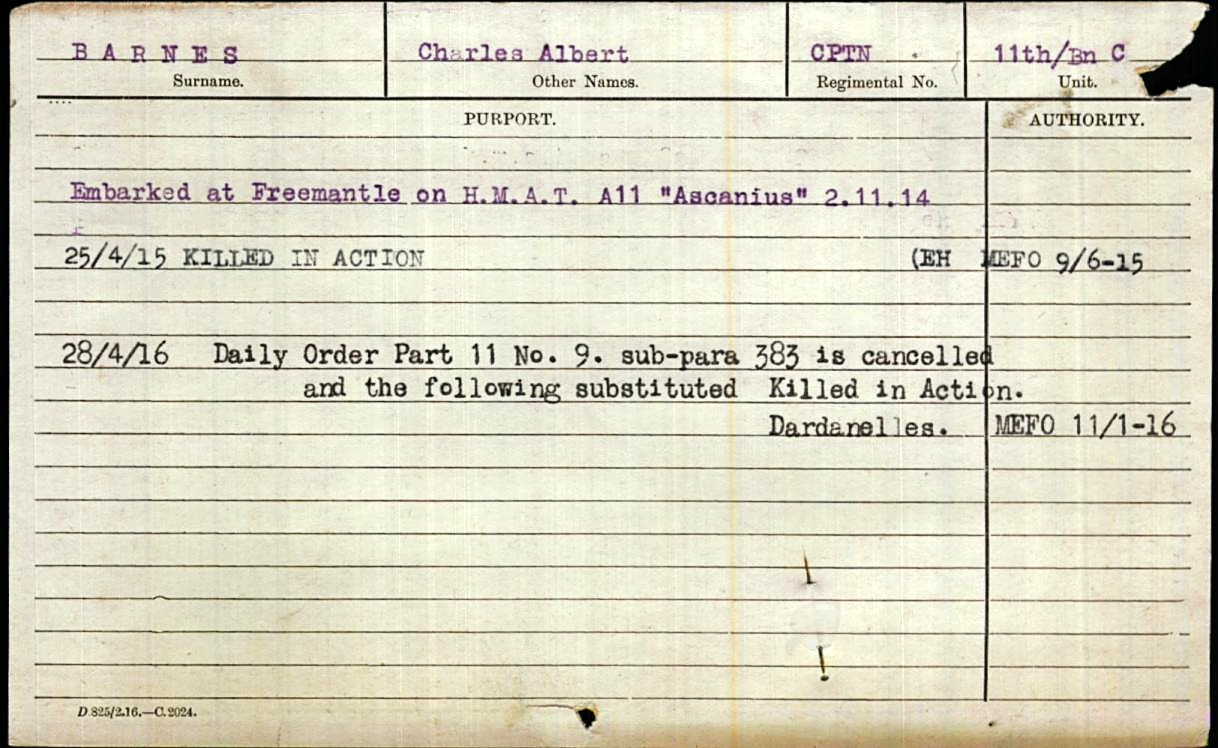 BARNES Charles Albert CPTN 11th/Bn C
Surname. Other Names. Regimental No. Unit.
PURPORT. AUTHORITY.
Embarked at Freemantle on H.M.A.T. A11 "Ascanius" 2.11.14
25/4/15 KILLED IN ACTION (EH MEFO 9/6-15
28/4/16 Daily Order Part 11 No. 9. sub-para 383 is cancelled
and the following substituted Killed in Action.
Dardanelles. MEFO 11/1-16
D.825/2.16.—C.2024.